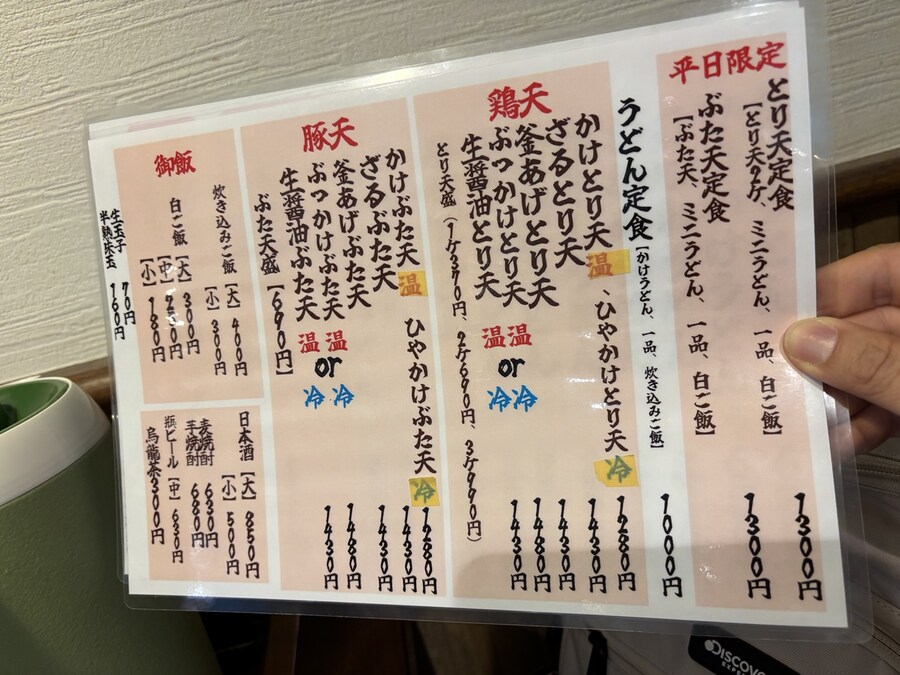 平日限定
とり天定食
【とり天2ケ、ミニうどん、一品、白ご飯】
1300円
ぶた天定食
【ぶた天、ミニうどん、一品、白ご飯】
1300円
うどん定食【かけうどん、一品、炊き込みご飯】
1000円
鶏天
かけとり天 温 、ひやかけとり天 冷
1280円
ざるとり天
1430円
釜あげとり天
1430円
ぶっかけとり天 温 or 冷
1480円
生醤油とり天 温 or 冷
1430円
とり天盛(1ケ370円、2ケ690円、3ケ990円)
豚天
かけぶた天 温 ひやかけぶた天 冷
1280円
ざるぶた天
1430円
釜あげぶた天
1430円
ぶっかけぶた天 温 or 冷
1480円
生醤油ぶた天 温 or 冷
1430円
ぶた天盛【690円】
御飯
炊き込みご飯【大】400円
【小】300円
白ご飯【大】300円
【中】250円
【小】180円
生玉子 70円
半熟味玉 160円
日本酒【大】850円
【小】500円
麦焼酎 630円
芋焼酎 680円
瓶ビール【中】630円
烏龍茶300円
DISCOVE
EXPE